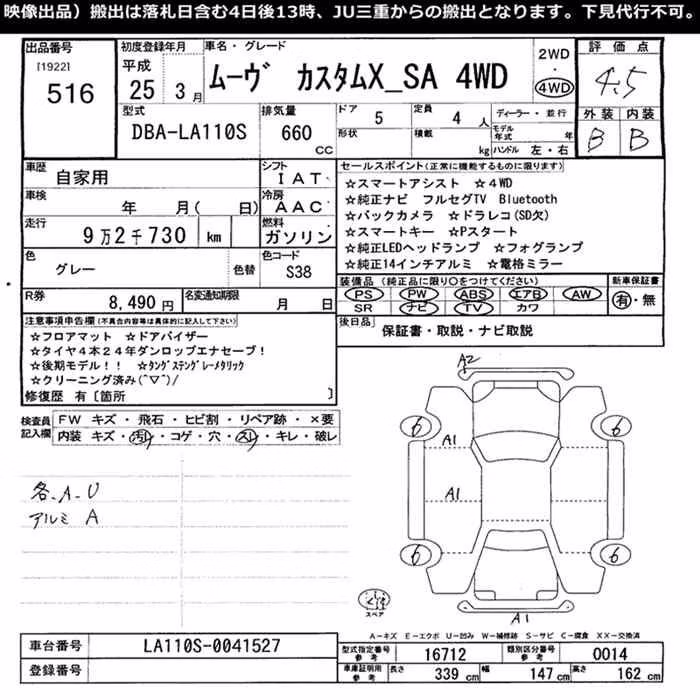 映像出品）搬出は落札日含む4日後13時、JU三重からの搬出となります。下見代行不可。
出品番号 [1922] 516
初度登録年月 平成 25 3月
車名・グレード ムーヴ カスタムX_SA 4WD
2WD 4WD
評価点 4.5
外装 内装
B B
型式 DBA-LA110S
排気量 660 CC
ドア 5 形状
定員 4人 積載 kg
ディーラー・並行
モデル年式 年
ハンドル 左・右
車歴 自家用
シフト IAT
車検 年 月( 日)
冷房 AAC
走行 9万2千730 km
燃料 ガソリン
色 グレー 色替
色コード S38
R券 8,490円
名変通知期限 月 日
セールスポイント(正常に機能するものに限ります)
☆スマートアシスト ☆4WD
☆純正ナビ フルセグTV Bluetooth
☆バックカメラ ☆ドラレコ(SD欠)
☆スマートキー ☆Pスタート
☆純正LEDヘッドランプ ☆フォグランプ
☆純正14インチアルミ ☆電格ミラー
装備品 (純正品に限り○をつけてください)
PS PW ABS エアB AW
SR ナビ TV カワ
新車保証書
有・無
後日品 保証書・取説・ナビ取説
注意事項申告欄(不具合内容等は具体的に記入して下さい)
☆フロアマット ☆ドアバイザー
☆タイヤ4本24年ダンロップエナセーブ！
☆後期モデル！！ ☆タングステングレーメタリック
☆クリーニング済み(^▽^)/
修復歴 有〔箇所 〕
検査員記入欄
FW キズ・飛石・ヒビ割・リペア跡・×要
内装 キズ・汚れ・コゲ・穴・スレ・キレ・破レ
各.A.U
アルミ A
A2
6 6
A1
A1
6 6
スペア
A1
A－キズ E－エクボ U－凹み W－補修跡 S－サビ C－腐食 XX－交換済
車台番号 LA110S-0041527
登録番号
型式指定番号 参考 16712
類別区分番号 参考 0014
車庫証明用 参考 長さ 339 cm 幅 147 cm 高さ 162 cm